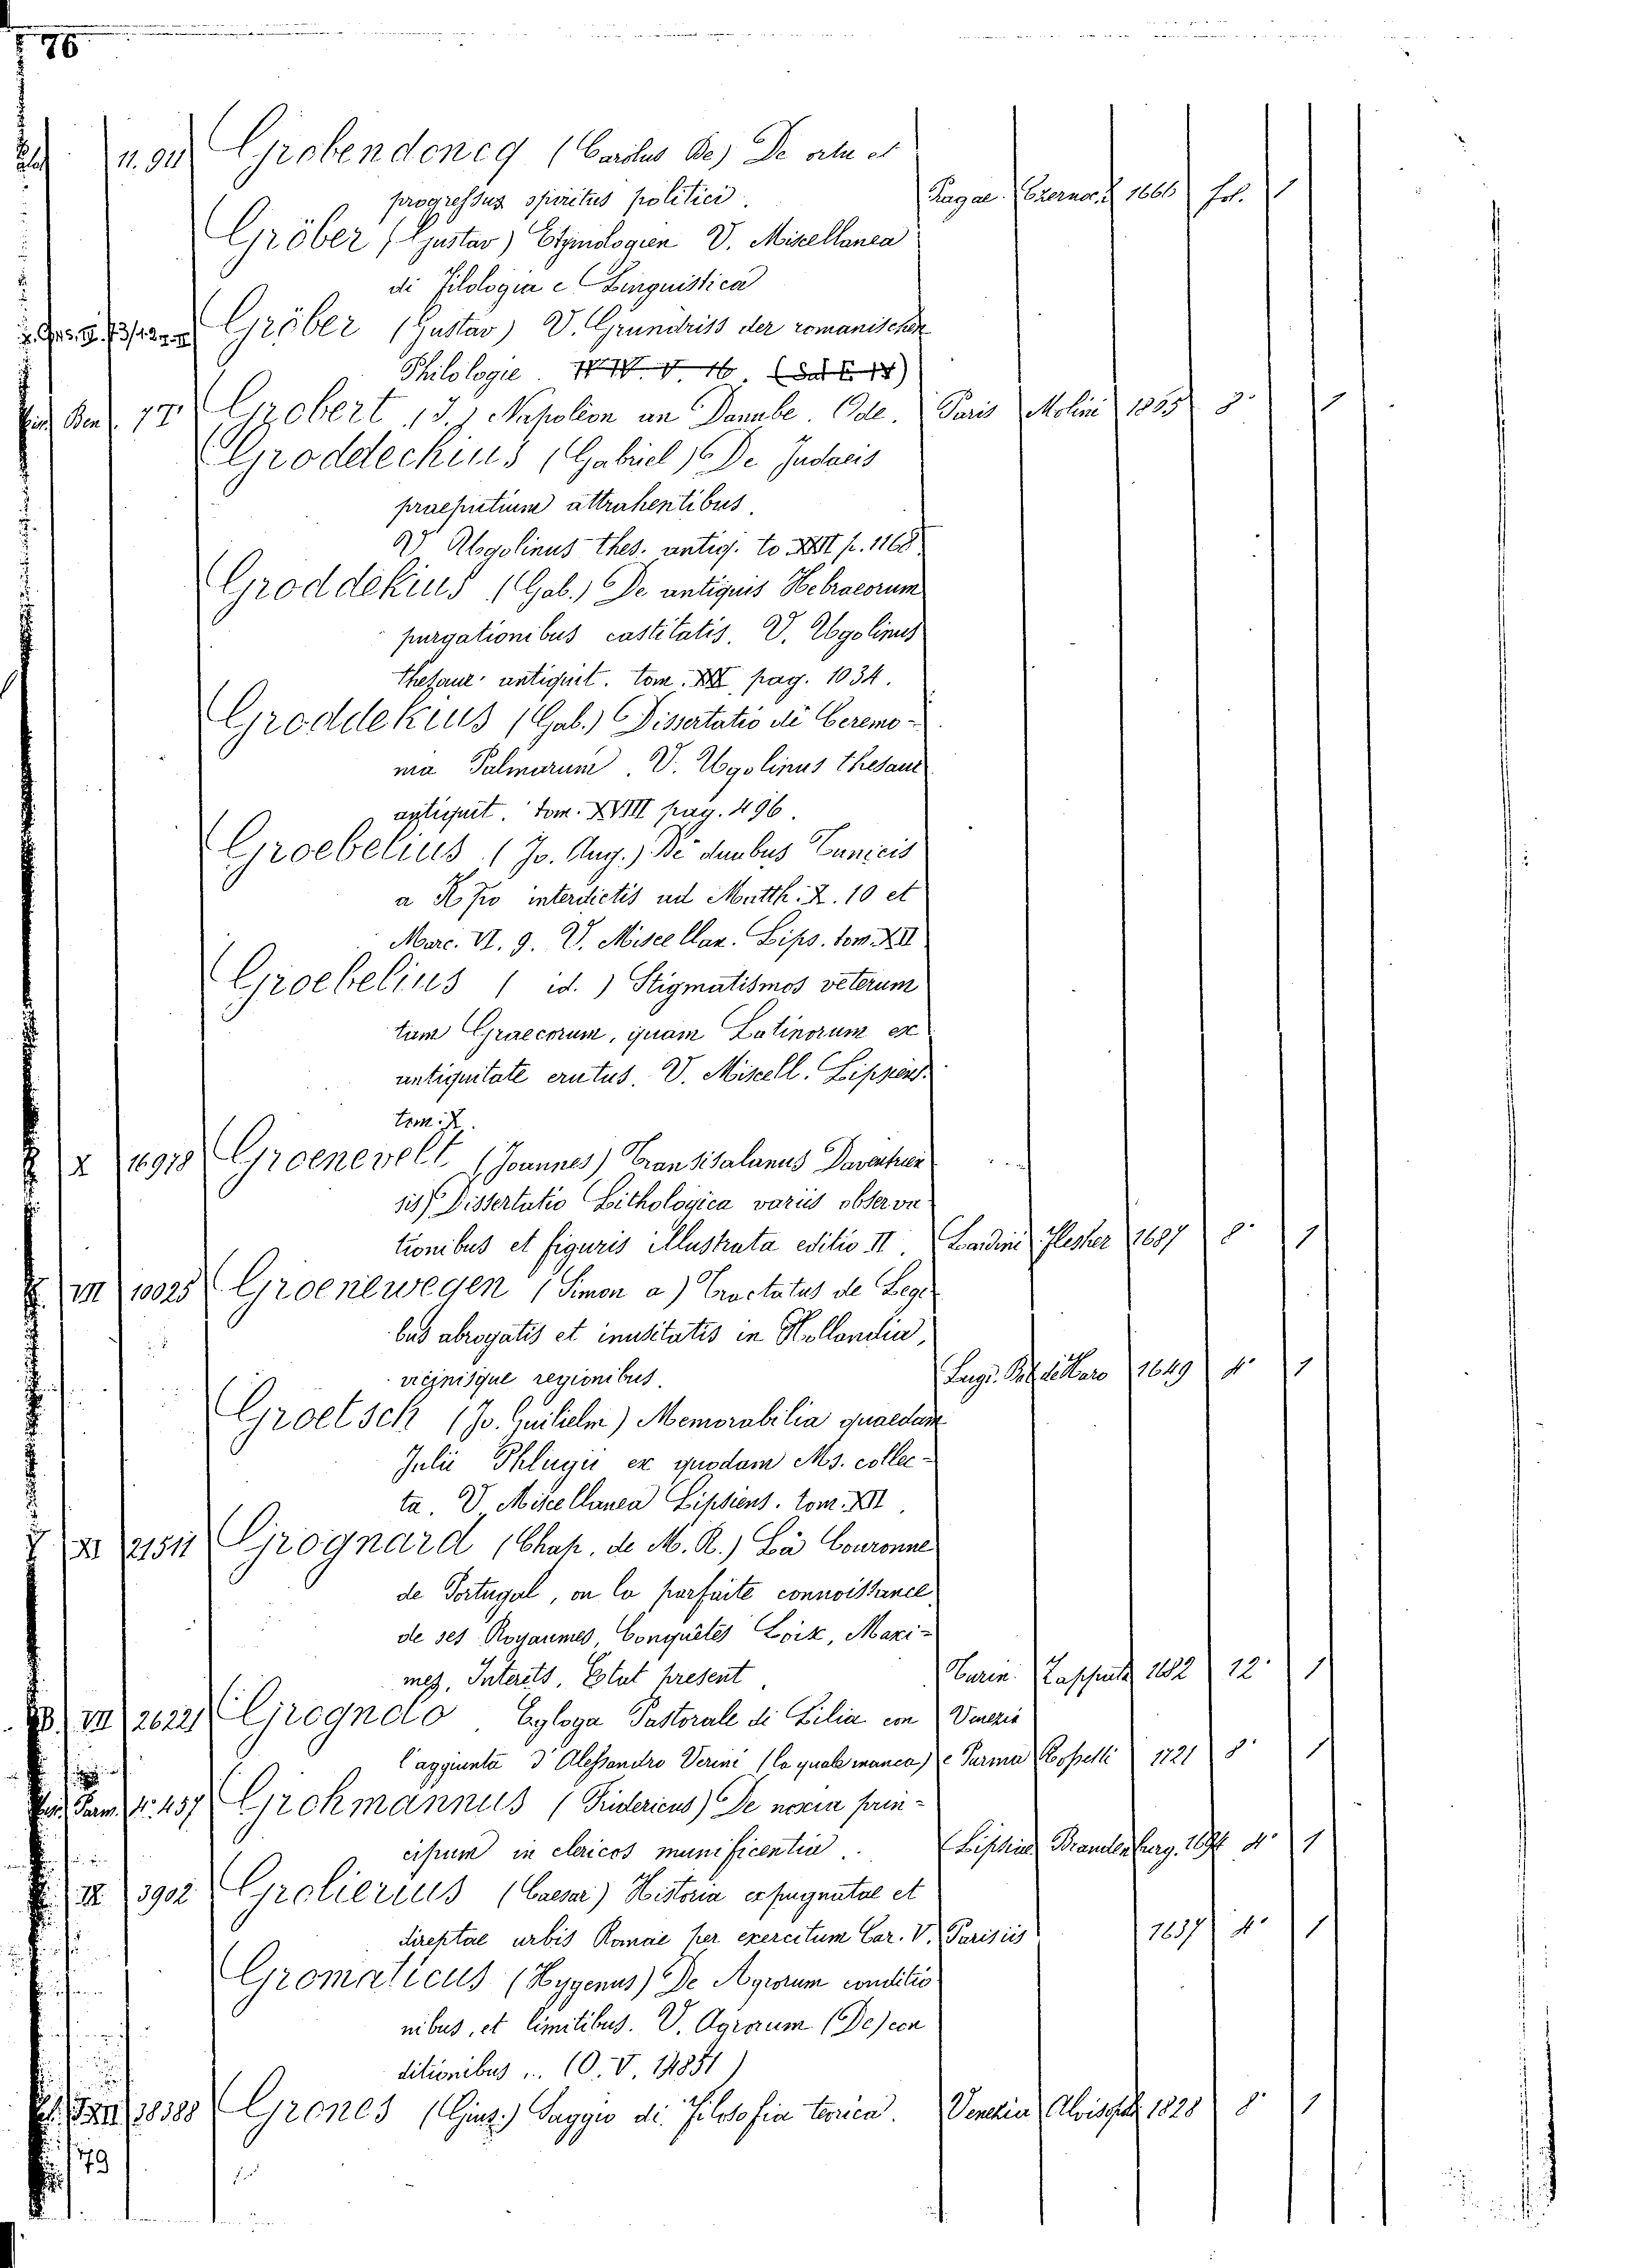 76
11. 911 Grobendoncq (Carolus de) De ortu et
progressus spiritus politici. Pragae. Czernoc. 1666 fol. 1
Gröber (Gustav) Etymologien V. Miscellanea
di Filologia e Linguistica
Gröber (Gustav) V. Grundriss der romanischen
Philologie. IV. V. 16.
Ben. 77. Grobert (J.) Napoléon au Danube. Ode. Paris Molini 1805 8° 1
Groddeckius (Gabriel) De Judaeis
praeputium attrahentibus.
V. Ugolinus thes. antiq. to XXII p. 1168
Groddekius (Gab.) De antiquis Hebraeorum
purgationibus castitatis. V. Ugolinus
thesaur. antiquit. tom. XXI pag. 1034.
Groddekius (Gab.) Dissertatio de Ceremo-
nia Palmarum. V. Ugolinus thesaur
antiquit. tom. XVIII pag. 496.
Groebelius (Jo. Aug.) De duabus Tunicis
a Xpo interdictis ad Matth. X. 10 et
Marc. VI. 9. V. Miscellan. Lips. tom. XII
Groebelius (id.) Stigmatismos veterum
tam Graecorum, quam Latinorum ex
antiquitate erutus. V. Miscell. Lipsiens.
tom. X.
X 16978 Groenevelt (Joannes) Transisalanus Daventrien
sis) Dissertatio Lithologica variis observa
tionibus et figuris illustrata editio II. Londini Flesher 1687 8° 1
VII 10025 Groenewegen (Simon a) Tractatus de Legi
bus abrogatis et inusitatis in Hollandia,
vicinisque regionibus. Lugd. Bat. de Haro 1649 4° 1
Groetsch (Jo. Guilielm) Memorabilia quaedam
Julii Phlugii ex quodam Ms. collec-
ta. V. Miscellanea Lipsiens. tom. XII.
XI 21511 Grognard (Chap. de M. R.) La Couronne
de Portugal, ou la parfaite connoissance
de ses Royaumes, Conquêtes Loix, Maxi-
mes, Interets, Estat present. Turin. Zappata 1682 12° 1
VII 26221 Grognolo Egloga Pastorale di Lilia con Venezia
l'aggiunta d'Alessandro Verini (la quale manca) e Parma Rosselli 1721 8° 1
Parm. N. 437 Grohmannus (Fridericus) De noxia prin-
cipum in clericos munificentia. Lipsiae Brandenburg. 1694 4° 1
III 3902 Grolierius (Caesar) Historia expugnatae et
direptae urbis Romae per exercitum Car. V. Parisiis 1637 4° 1
Gromaticus (Hygenus) De Agrorum conditio
nibus, et limitibus. V. Agrorum (De) con
ditionibus ... (O. V. 14851)
38388 Grones (Gius.) Saggio di Filosofia teorica. Venezia Alvisopoli 1828 8° 1
79